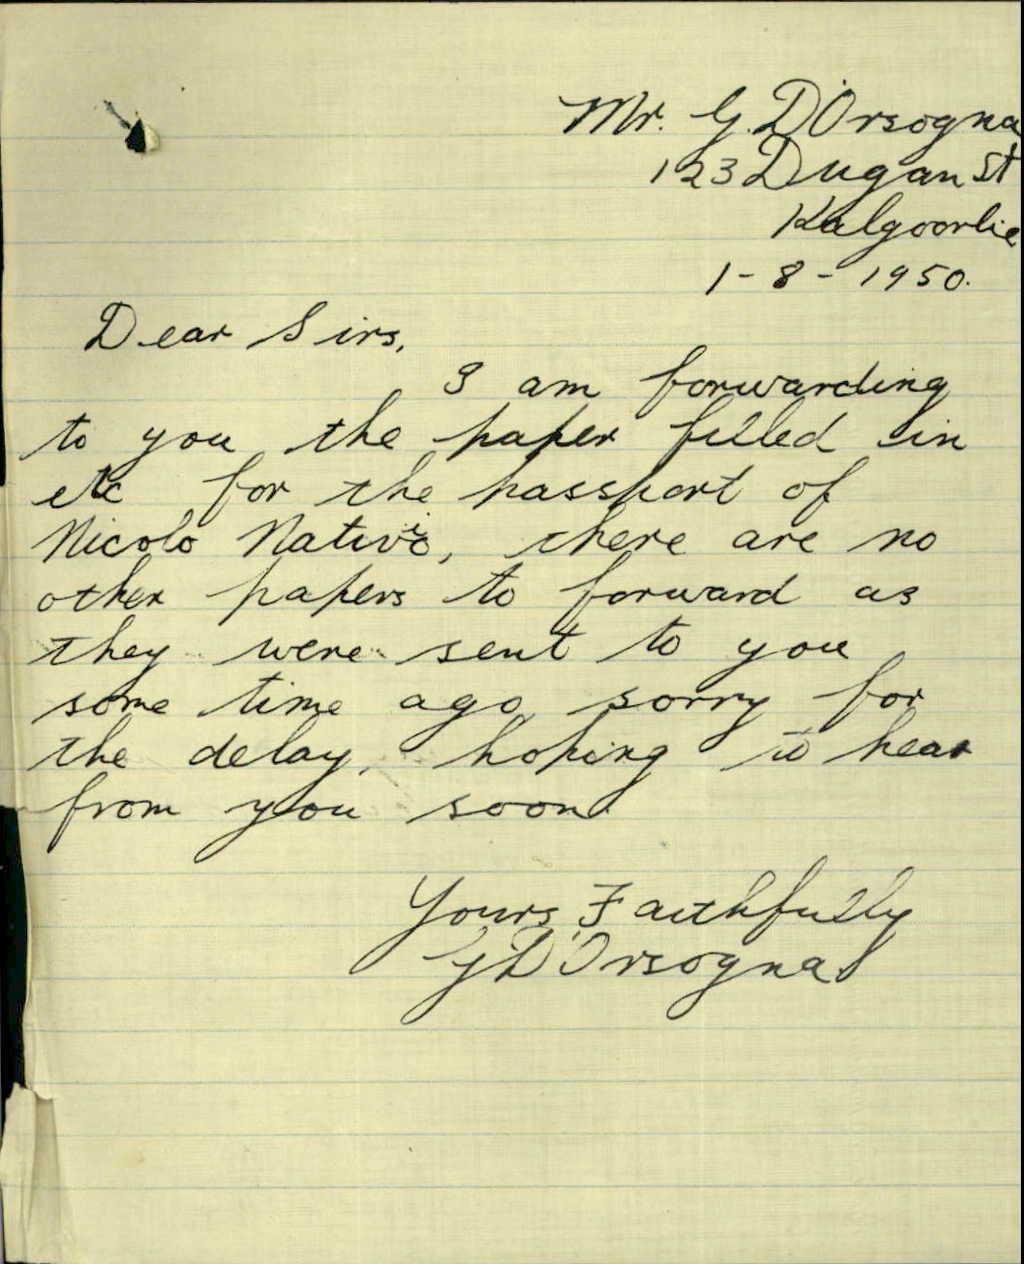 Mr. G. D'Orsogna
123 Dugan St
Kalgoorlie
1-8-1950.
Dear Sirs,
I am forwarding
to you the paper filled in
etc for the passport of
Nicolo Nativio, there are no
other papers to forward as
they were sent to you
some time ago, sorry for
the delay, hoping to hear
from you soon
Yours Faithfully
G D'Orsogna